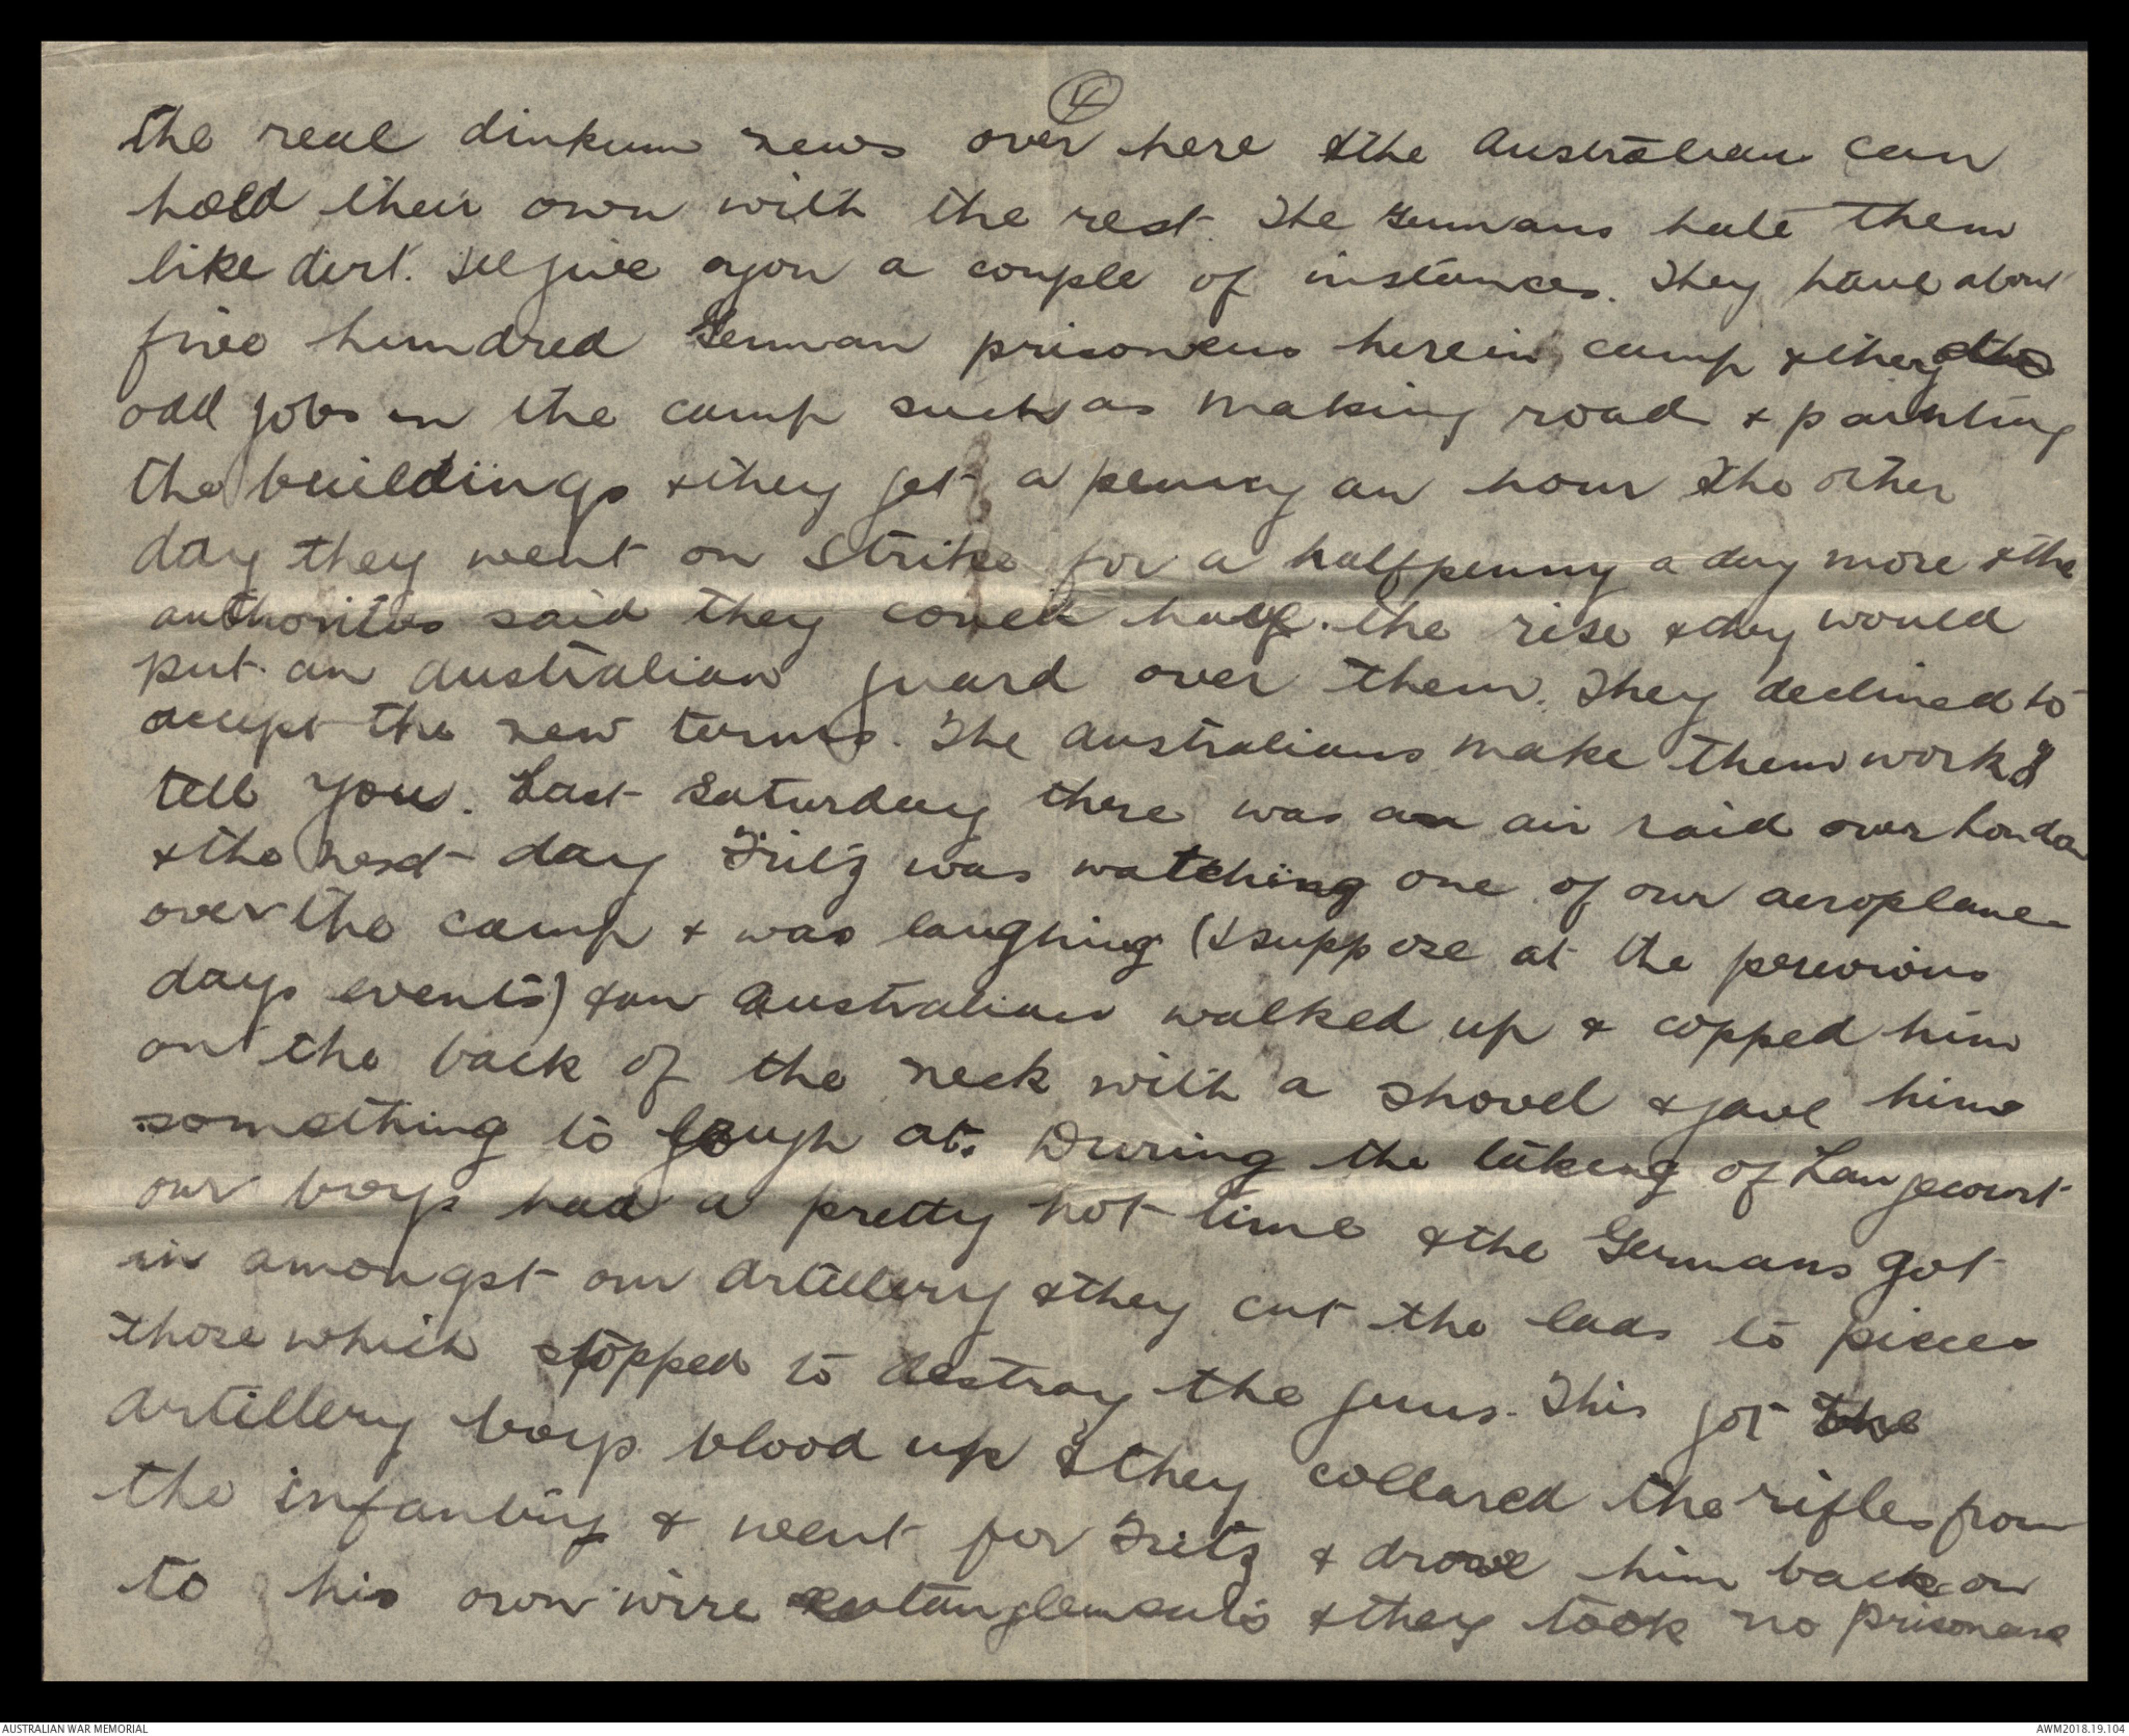 4
the real dinkum news over here & the Australian can
hold their own with the rest. The Germans hate them
like dirt. I'll give you a couple of instances. They have about
five hundred German prisoners here in camp & they do
odd jobs in the camp such as making road & painting
the buildings & they get a penny an hour & the other
day they went on strike for a halfpenny a day more & the
authorities said they could have the rise & they would
put an Australian guard over them. They declined to
accept the new terms. The Australians make them work I
tell you. Last Saturday there was an air raid over London
& the next day Fritz was watching one of our aeroplanes
over the camp & was laughing (I suppose at the previous
days events) & an Australian walked up & copped him
on the back of the neck with a shovel & gave him
something to laugh at. During the taking of Langecourt
our boys had a pretty hot time & the Germans got
in amongst our artillery & they cut the lads to pieces
those which stopped to destroy the guns. This got the
artillery boys blood up & they collared the rifles from
the infantry & went for Fritz & drove him back on
to his own wire entanglements & they took no prisoners
AUSTRALIAN WAR MEMORIAL
AWM2018.19.104